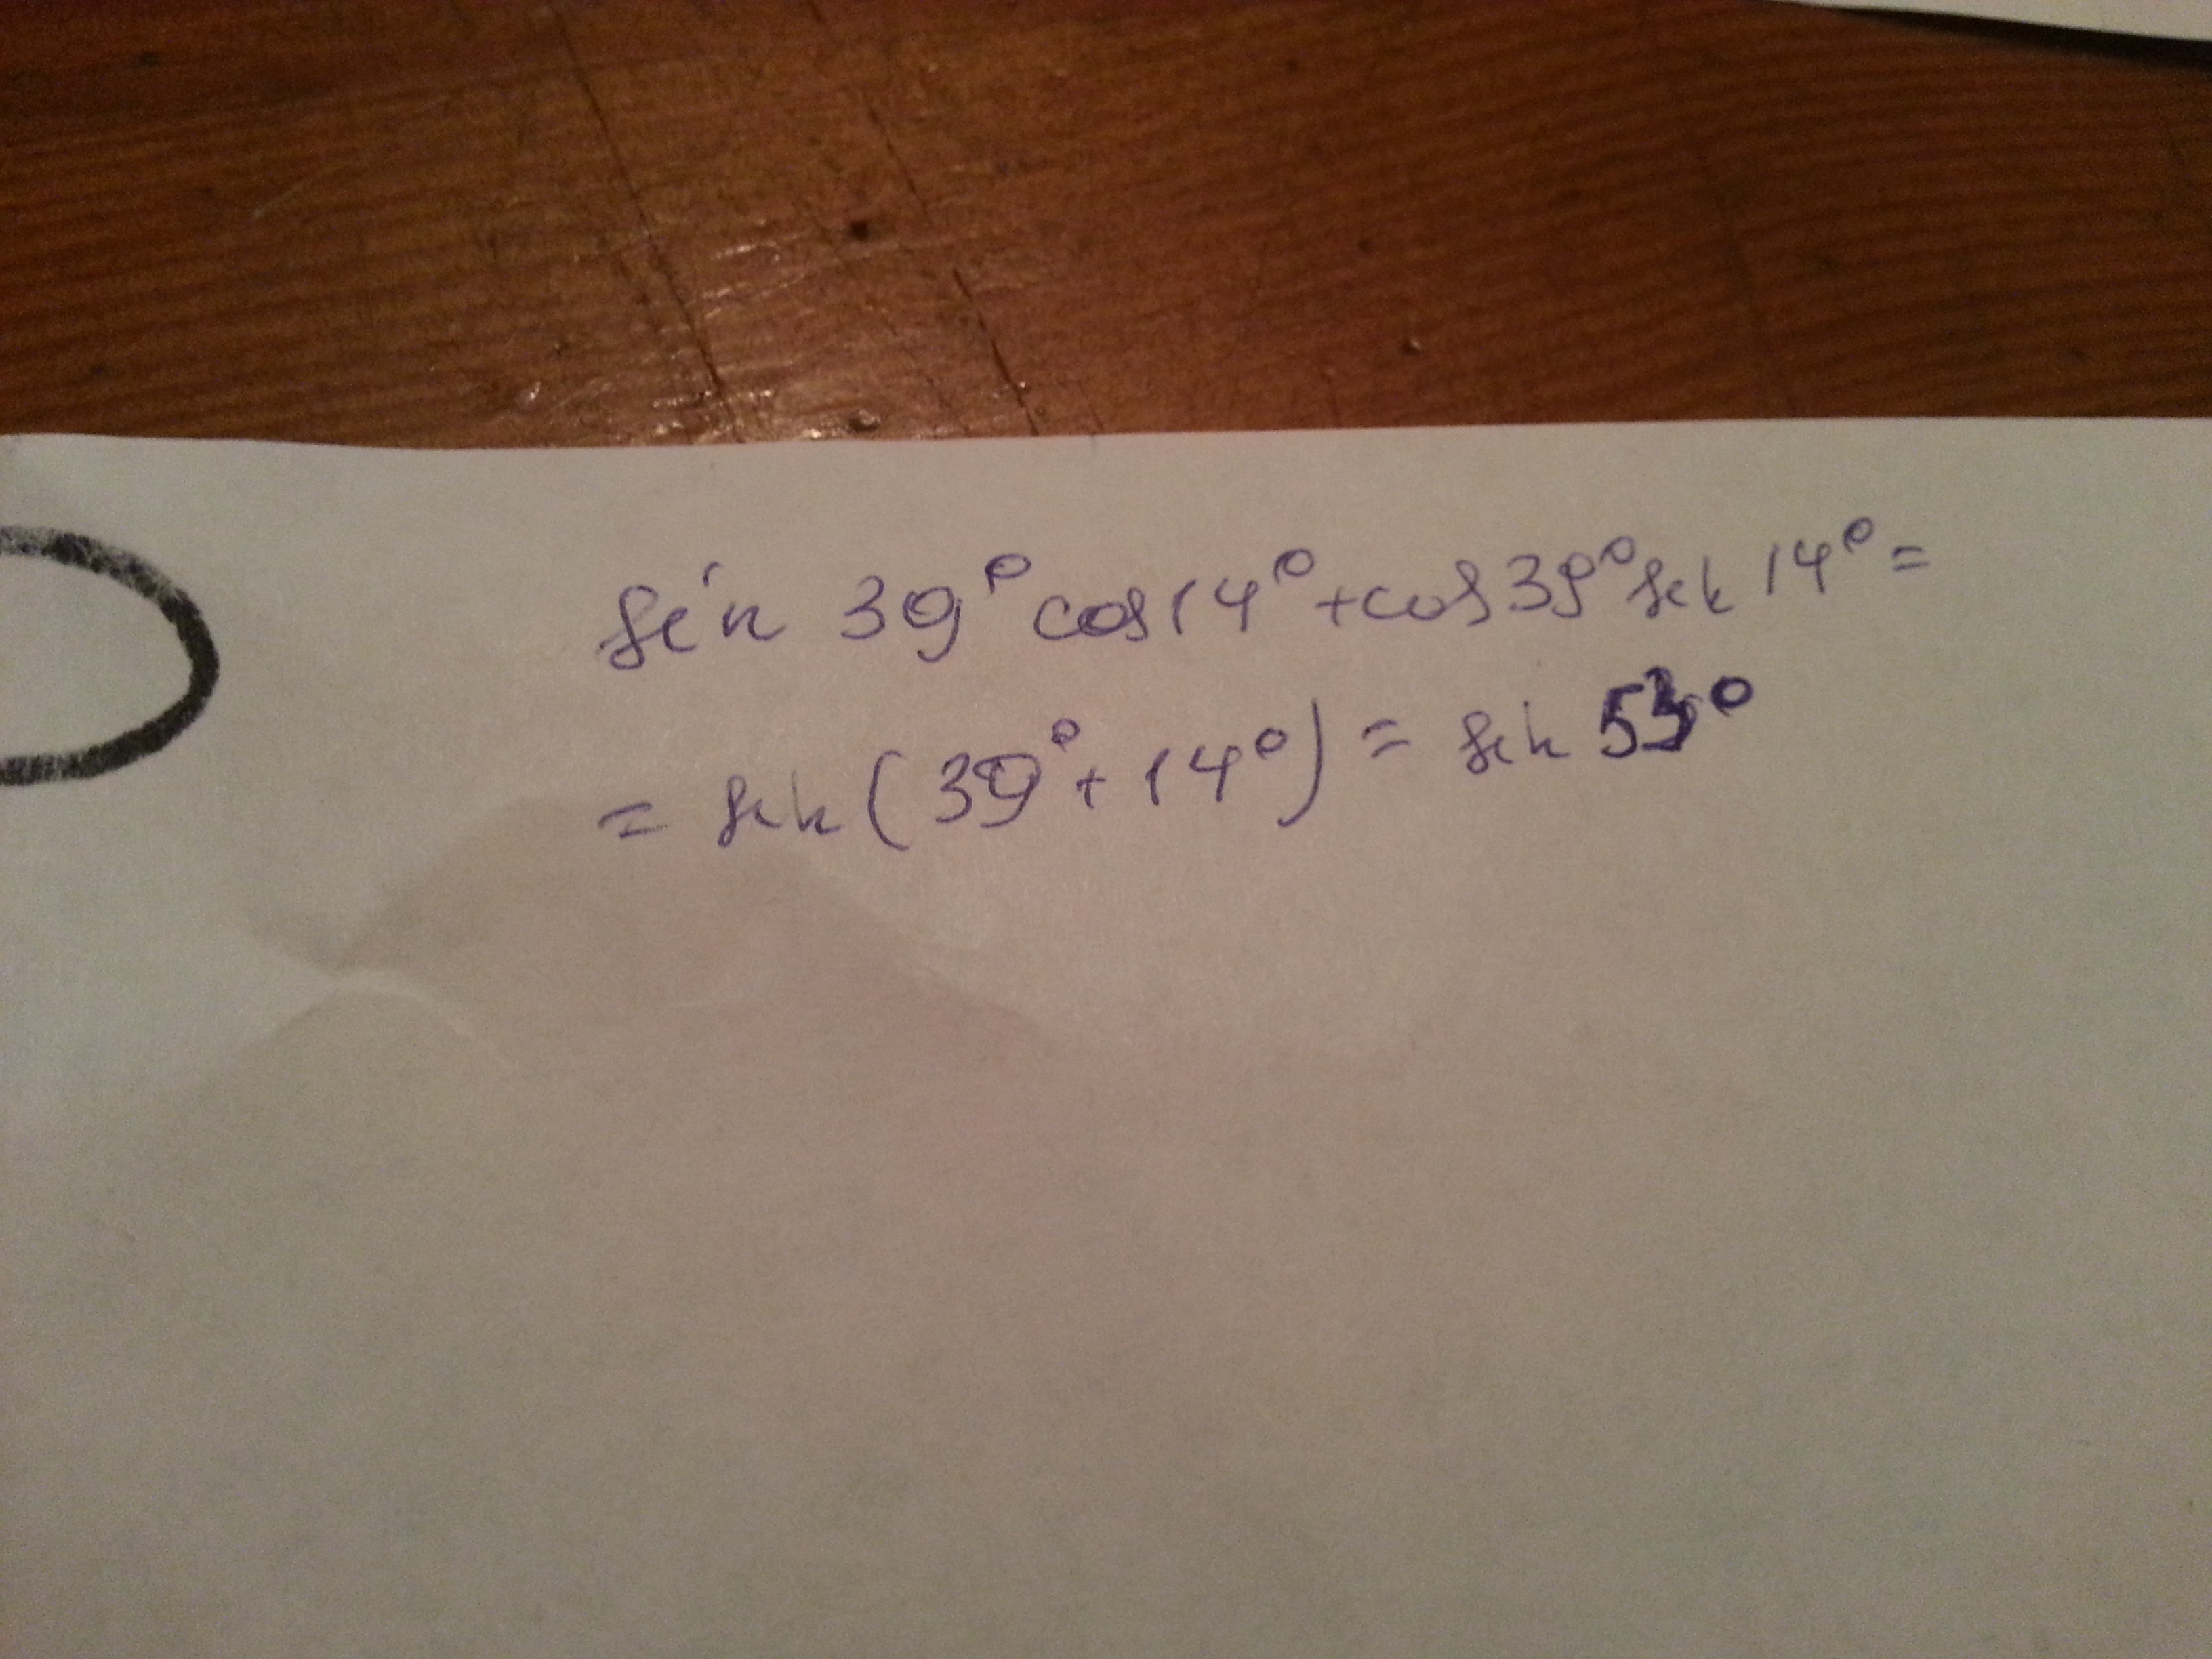 sin 39° cos 14° + cos 39° sin 14° =
= sin (39° + 14°) = sin 53°